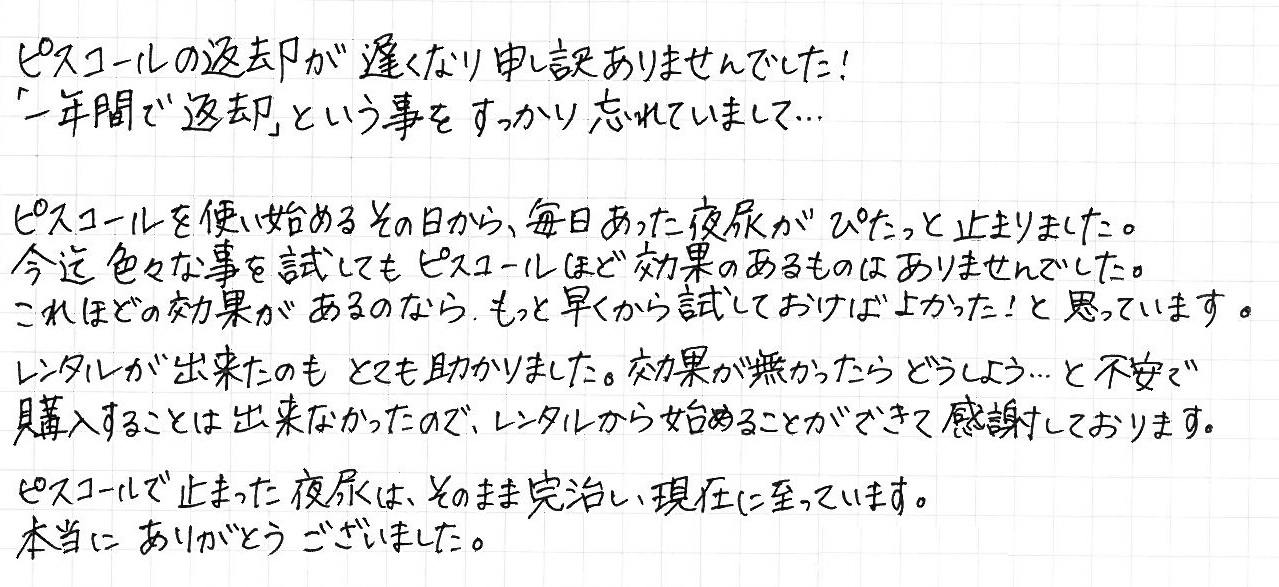 ピスコールの返却が遅くなり申し訳ありませんでした!
「一年間で返却」という事をすっかり忘れていまして…
ピスコールを使い始めるその日から、毎日あった夜尿がぴたっと止まりました。
今迄色々な事を試してもピスコールほど効果のあるものはありませんでした。
これほどの効果があるのなら、もっと早くから試しておけばよかった!と思っています。
レンタルが出来たのもとても助かりました。効果が無かったらどうしよう…と不安で
購入することは出来なかったので、レンタルから始めることができて感謝しております。
ピスコールで止まった夜尿は、そのまま完治し、現在に至っています。
本当にありがとうございました。